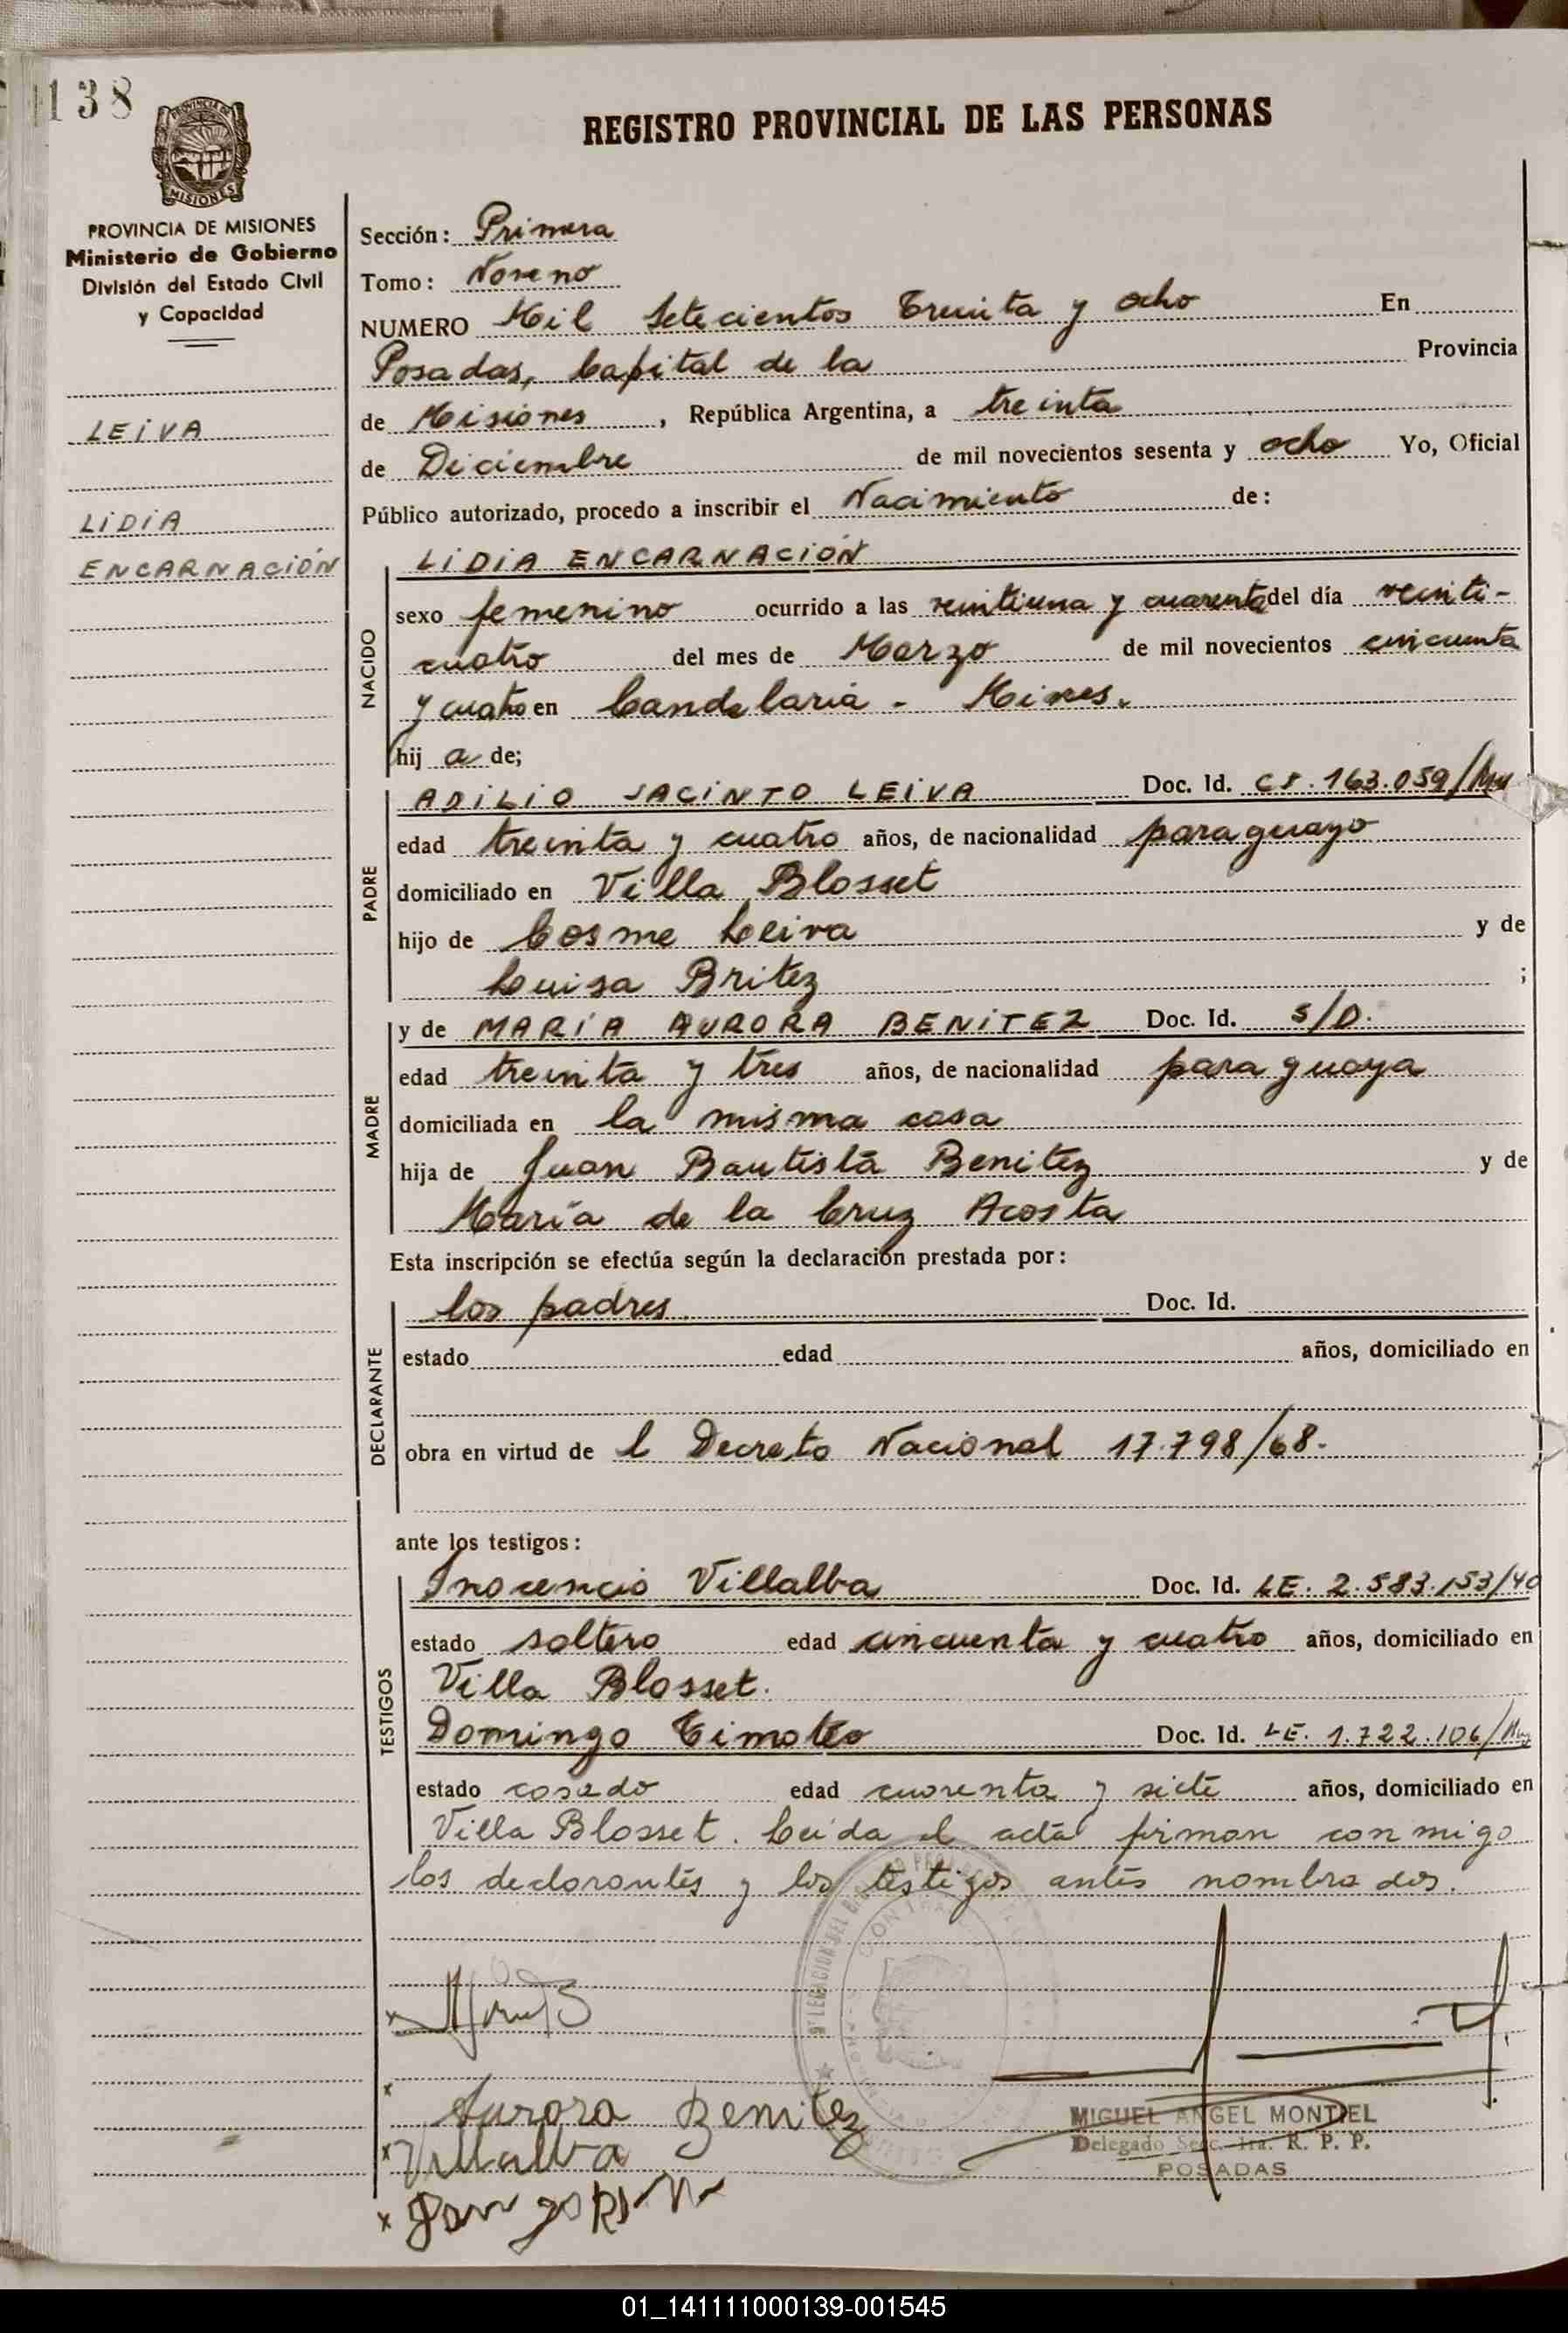 138
REGISTRO PROVINCIAL DE LAS PERSONAS
PROVINCIA DE
MISIONES
PROVINCIA DE MISIONES
Ministerio de Gobierno
División del Estado Civil
y Capacidad
LEIVA
LIDIA
ENCARNACIÓN
Sección: Primera
Tomo: Noveno
NUMERO Mil Setecientos Treinta y ocho En
Posadas, Capital de la Provincia
de Misiones, República Argentina, a treinta
de Diciembre de mil novecientos sesenta y ocho Yo, Oficial
Público autorizado, procedo a inscribir el Nacimiento de:
NACIDO
LIDIA ENCARNACIÓN
sexo femenino ocurrido a las veintiuna y cuarenta del día veinti-
cuatro del mes de Marzo de mil novecientos cincuenta
y cuatro en Candelaria - Mnes.
hij a de;
PADRE
ADILIO JACINTO LEIVA Doc. Id. CI. 163.059/
edad treinta y cuatro años, de nacionalidad paraguayo
domiciliado en Villa Blosset
hijo de Cosme Leiva y de
Luisa Britez ;
MADRE
y de MARÍA AURORA BENITEZ Doc. Id. S/D.
edad treinta y tres años, de nacionalidad paraguaya
domiciliada en la misma casa
hija de Juan Bautista Benitez y de
María de la Cruz Acosta
Esta inscripción se efectúa según la declaración prestada por:
DECLARANTE
los padres Doc. Id.
estado edad años, domiciliado en
obra en virtud de l Decreto Nacional 17.798/68.
ante los testigos:
TESTIGOS
Inocencio Villalba Doc. Id. LE. 2.583.153/40
estado soltero edad cincuenta y cuatro años, domiciliado en
Villa Blosset.
Domingo Timoteo Doc. Id. LE. 1.722.106/
estado casado edad cuarenta y siete años, domiciliado en
Villa Blosset. Leída el acta firman conmigo
los declarantes y los testigos antes nombrados.
x
x Aurora Benitez
x Villalba
x
MIGUEL ANGEL MONTIEL
Delegado Secc. 1ra. R. P. P.
POSADAS
01_141111000139-001545